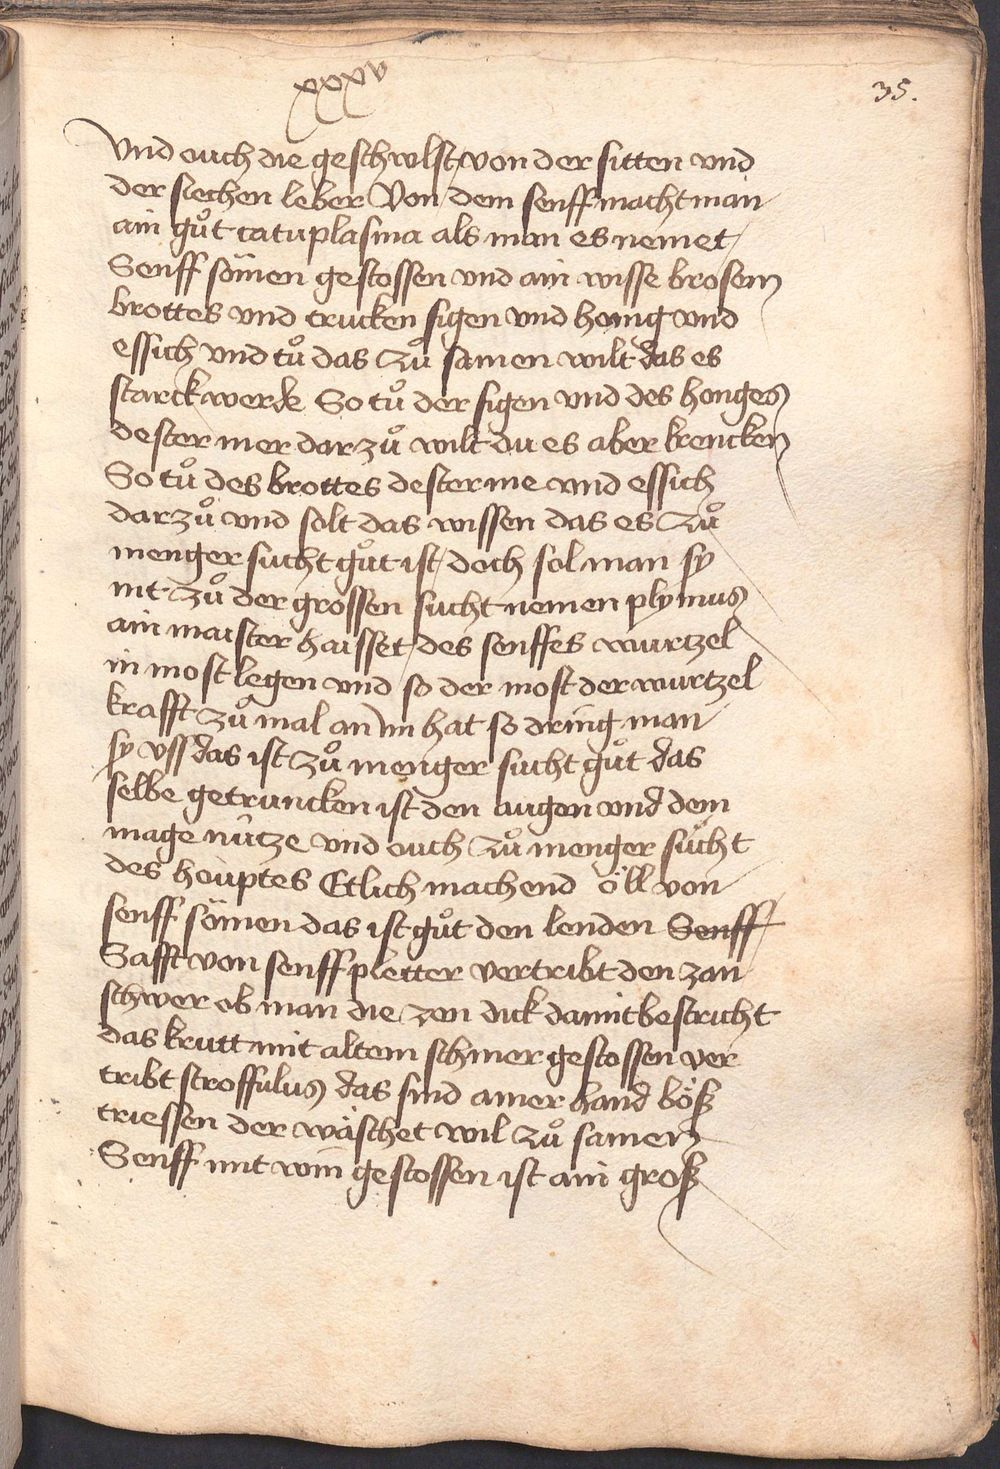 xxxv
35.
vnd ouch die geschwlst / von der sitten vnd
der siechen leber Von dem senff macht man
ain gůt catuplasma als man es nemet /
Senff sömen gestossen vnd ain wisse brosem
brottes vnd trucken figen vnd honig vnd
essich vnd tů das zů samen wilt das es
starck werde So tů der figen vnd des honges
dester mer dar zů wilt du es aber krencken
So tů des brottes dester me vnd essich
dar zů vnd solt das wissen das es zů
menger sucht gůt ist / doch sol man sy
nit zů der grossen sucht nemen plymus
ain maister haisset / des senffes wurtzel
in most legen vnd so der most der wurtzel
krafft zů mal an im hat so dring man
sy vss das ist zů menger sucht gůt das
selbe getruncken ist den augen vnd dem
mage nütze vnd ouch zů menger sücht
des höuptes Etlich machend öll von
senff sömen das ist gůt den lenden Senff
Safft von senff pletter vertribt den zan
schwer ob man die zen dick damit bestricht
das krutt mit altem schmer gestossen ver
tribt scroffulus das sind ainer hand böß
triessen der wäschet wil zů samen
Senff mit win gestossen ist ain groß